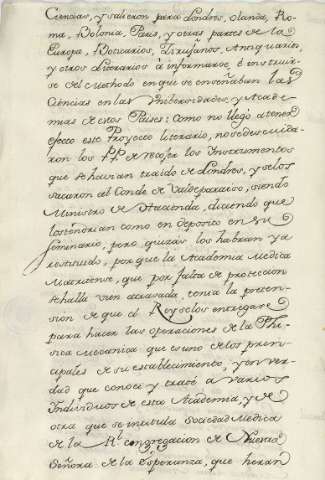 Ciencias, y salieron para Londres, olanda, Ro-
ma, Bolonia, Paris, y otras partes de la
Europa, Boticarios, Zirujanos, Antiquarios,
y otros Literarios à informarse, è instruir-
se del Methodo en que se enseñaban las
Ciencias en las Universidades, y Acade-
mias de estos Paises: Como no llegò a tener
efecto este Proyecto literario, no se descuida-
ron los PP. de recoger los Instrumentos
que se havian traido de Londres, y se los
sacaron al Conde de Valdeparaiso, siendo
Ministro de Hacienda, diciendo que
los tendrian como en deposito en su
Seminario, pero quizás los habran ya
restituido, porque la Academia Medica
Matritense, que por falta de proteccion
se halla vien atrasada, tenia la preten-
sion de que el Rey se los entregare
para hacer las operaciones de la Phi-
sica Mecanica que es uno de los prin-
cipales de su establecimiento, y en ver-
dad que conoce y tratè a varios
Individuos de esta Academia, y de
otra que se intitula Sociedad Medica
de la Rl. congregacion de Nuestra
Señora de la Esperanza, que heran